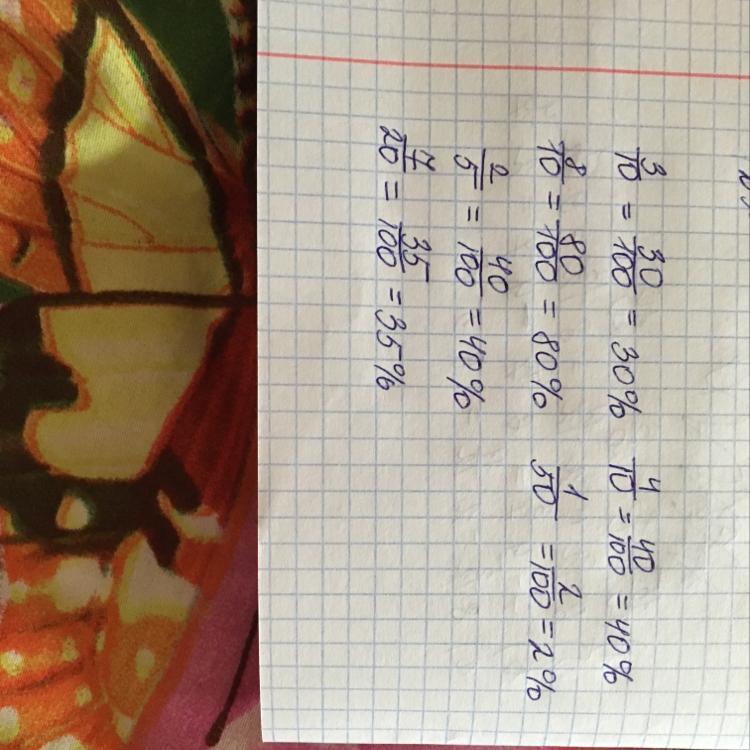 3/10 = 30/100 = 30% 4/10 = 40/100 = 40%
8/10 = 80/100 = 80% 1/50 = 2/100 = 2%
2/5 = 40/100 = 40%
7/20 = 35/100 = 35%